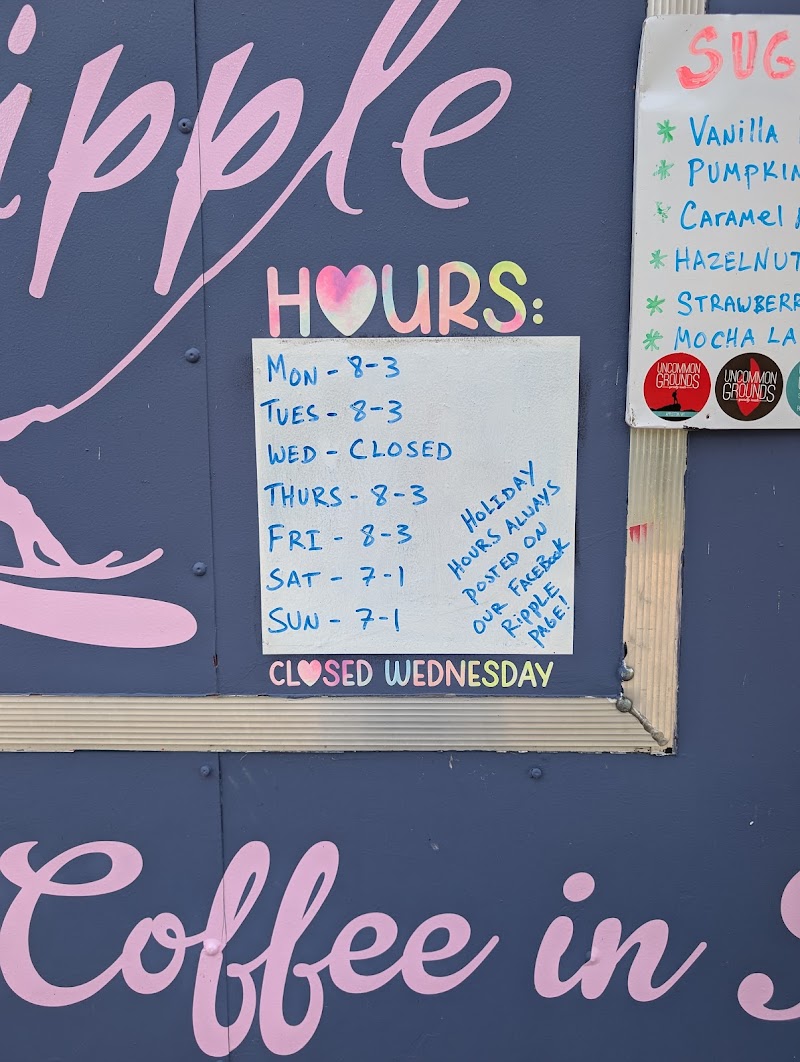 ipple
HOURS:
MON - 8-3
TUES - 8-3
WED - CLOSED
THURS - 8-3
FRI - 8-3
SAT - 7-1
SUN - 7-1
HOLIDAY
HOURS ALWAYS
POSTED ON
OUR FACEBOOK
RIPPLE
PAGE!
CLOSED WEDNESDAY
SUG
VANILLA
PUMPKIN
CARAMEl
HAZELNUT
STRAWBERR
MOCHA LA
UNCOMMON
GROUNDS
UNCOMMON
GROUNDS
Coffee in